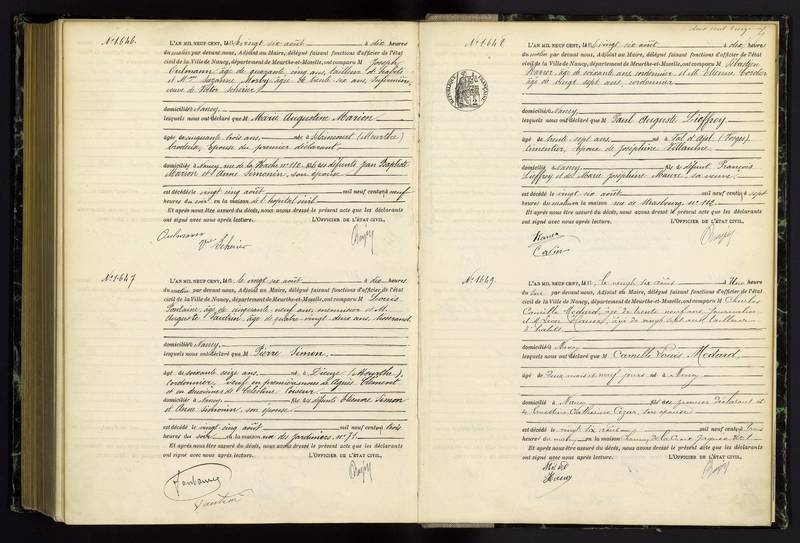 N° 1646.
L'AN MIL NEUF CENT, le vingt six août à dix heures
du matin par devant nous, Adjoint au Maire, délégué faisant fonctions d'officier de l'état
civil de la Ville de Nancy, département de Meurthe-et-Moselle, ont comparu M Joseph
âgé de quarante cinq ans, tailleur d'habits
et Mme Suzanne âgée de trente six ans, infirmière,
veuve de Victor
domiciliés à Nancy
lesquels nous ont déclaré que M Marie Augustine Marion
âgée de cinquante trois ans née à (Meurthe)
brodeuse, épouse du premier déclarant
domiciliée à Nancy, rue de la Hache n° 112 fille des défunts Jean Baptiste
Marion et d'Anne Simonin, son épouse
est décédée le vingt cinq août mil neuf cent, à neuf
heures du soir, en la maison de l'hôpital civil
Et après nous être assuré du décès, nous avons dressé le présent acte que les déclarants
ont signé avec nous après lecture. L'OFFICIER DE L'ÉTAT CIVIL,
N° 1647
L'AN MIL NEUF CENT, le vingt six août à dix heures
du matin par devant nous, Adjoint au Maire, délégué faisant fonctions d'officier de l'état
civil de la Ville de Nancy, département de Meurthe-et-Moselle, ont comparu M Louis
Fontaine, âgé de cinquante neuf ans, menuisier et M.
Auguste Vautrin, âgé de quatre vingt deux ans, tisserand
domiciliés à Nancy
lesquels nous ont déclaré que M Pierre Simon
âgé de soixante seize ans né à Dieuze (Meurthe),
cordonnier, veuf en premières noces de Agnès Clément
et en deuxièmes de Célestine
domicilié à Nancy fils des défunts Etienne Simon
et Anne Simonin, son épouse
est décédé le vingt cinq août mil neuf cent, à trois
heures du soir en la maison rue des Jardiniers, n° 71
Et après nous être assuré du décès, nous avons dressé le présent acte que les déclarants
ont signé avec nous après lecture. L'OFFICIER DE L'ÉTAT CIVIL,
Fontaine
Vautrin
deux cent
N° 1648
L'AN MIL NEUF CENT, le vingt six août à dix heures
du matin par devant nous, Adjoint au Maire, délégué faisant fonctions d'officier de l'état
civil de la Ville de Nancy, département de Meurthe-et-Moselle, ont comparu M Sébastien
âgé de soixante ans, cordonnier et M. Etienne Cordier
âgé de vingt sept ans, cordonnier
domiciliés à Nancy
lesquels nous ont déclaré que M Paul Auguste Dieffrey
âgé de trente sept ans né à Val d'Ajol (Vosges),
cimentier, époux de Joséphine Villaume
domicilié à Nancy fils de défunt François
Dieffrey et de Marie Joséphine sa veuve
est décédé le vingt six août mil neuf cent, à sept
heures du matin en la maison rue de Strasbourg n° 112
Et après nous être assuré du décès, nous avons dressé le présent acte que les déclarants
ont signé avec nous après lecture. L'OFFICIER DE L'ÉTAT CIVIL,
N° 1649.
L'AN MIL NEUF CENT, le vingt six août à Une heure
du soir par devant nous, Adjoint au Maire, délégué faisant fonctions d'officier de l'état
civil de la Ville de Nancy, département de Meurthe-et-Moselle, ont comparu M Charles
Camille Médard, âgé de trente neuf ans, journalier
et âgé de vingt sept ans, tailleur
d'habits
domiciliés à Nancy
lesquels nous ont déclaré que M Camille Louis Médard,
âgé de Deux mois et neuf jours né à Nancy
domicilié à Nancy fils du premier déclarant et
de Ernestine Catherine César, son épouse
est décédé le vingt six août mil neuf cent, à
heures du matin en la maison
Et après nous être assuré du décès, nous avons dressé le présent acte que les déclarants
ont signé avec nous après lecture. L'OFFICIER DE L'ÉTAT CIVIL,